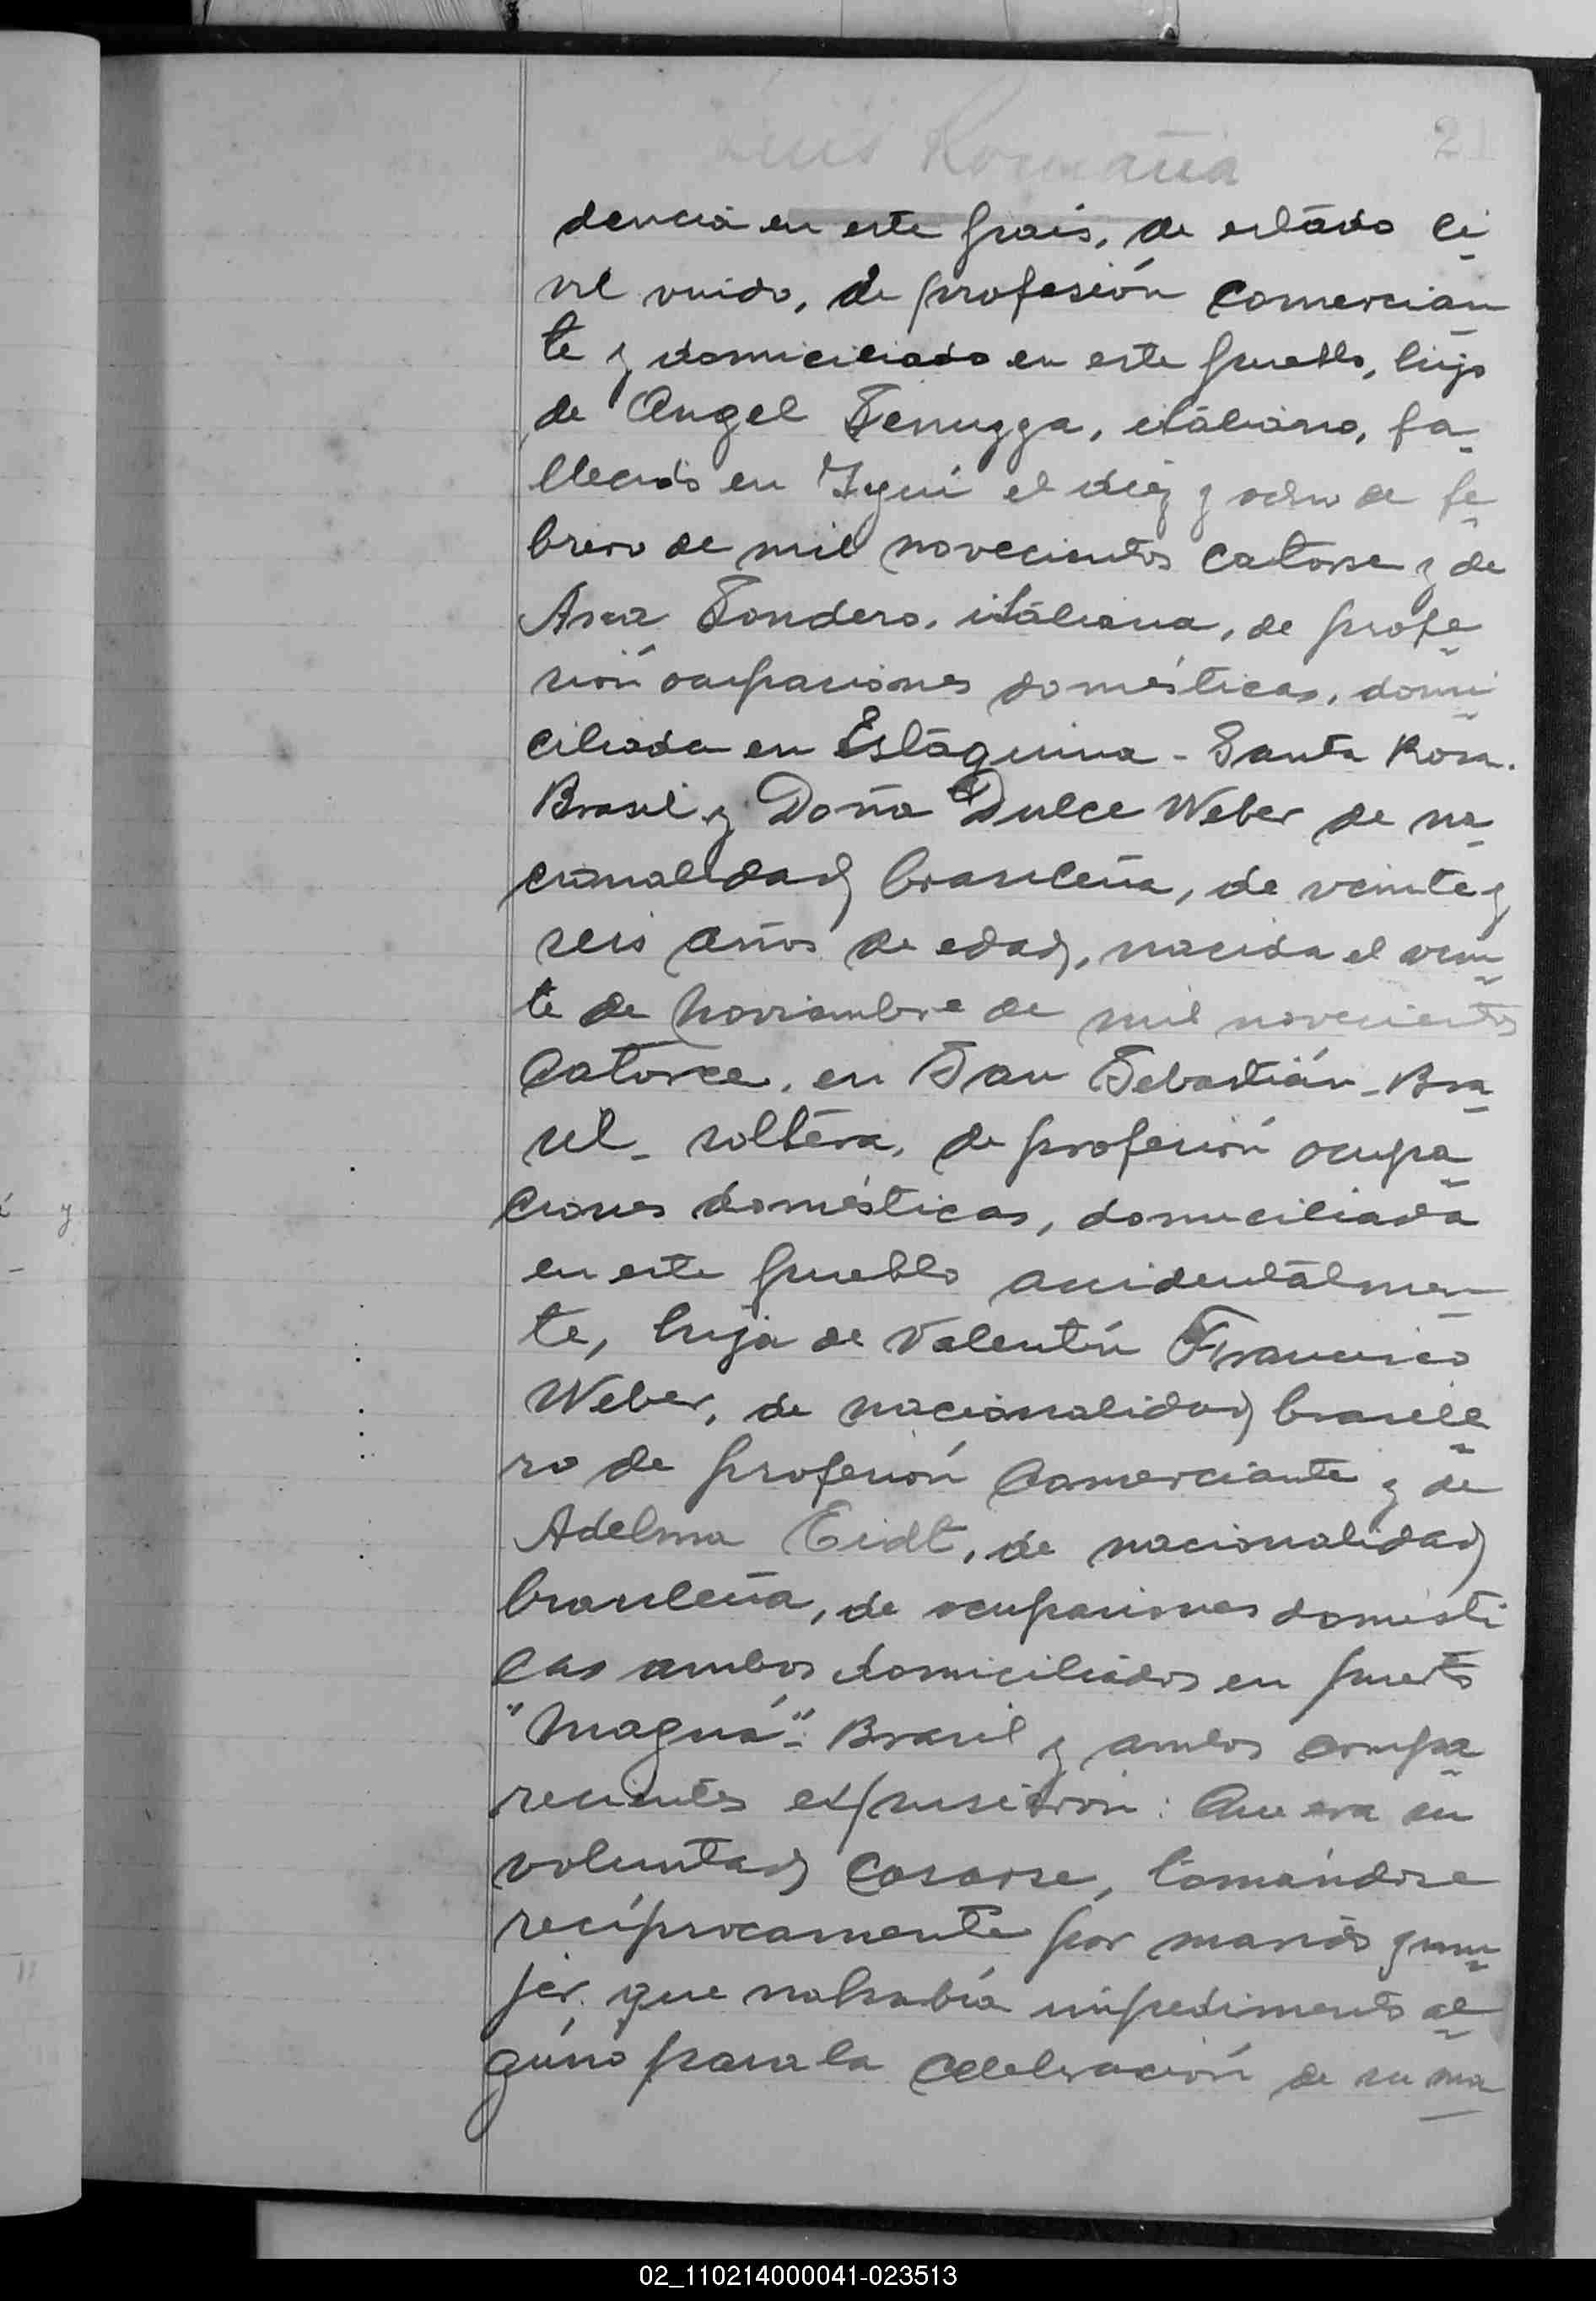 Luis Romaña
21
dencia en este pais, de estado ci
vil viudo, de profesión comercian
te y domiciliado en este pueblo, hijo
de Angel Senugga, italiano, fa
llecido en Iyuí el diez y ocho de fe
brero de mil novecientos catorse y de
Ana Sondero, italiana, de profe
sión ocupaciones domésticas, domi
ciliada en Estáquina - Santa Rosa.
Brasil y Doña Dulce Weber de na
cionalidad brasileña, de veinte y
seis años de edad, nacida el vein
te de Noviembre de mil novecientos
Catorce, en San Sebastián - Bra
sil - soltera, de profesión ocupa
ciones domésticas, domiciliada
en este pueblo accidentalmen
te, hija de Valentín Francisco
Weber, de nacionalidad brasile
ro de profesión Comerciante y de
Adelma Eidt, de nacionalidad
brasileña, de ocupaciones domésti
cas ambos domiciliados en puerto
"Maguá" - Brasil y ambos compa
recientes expusieron: Que era su
voluntad casarse, tomándose
recíprocamente por marido y mu
jer, que no había impedimento al
guno para la celebración de su ma
02_110214000041-023513